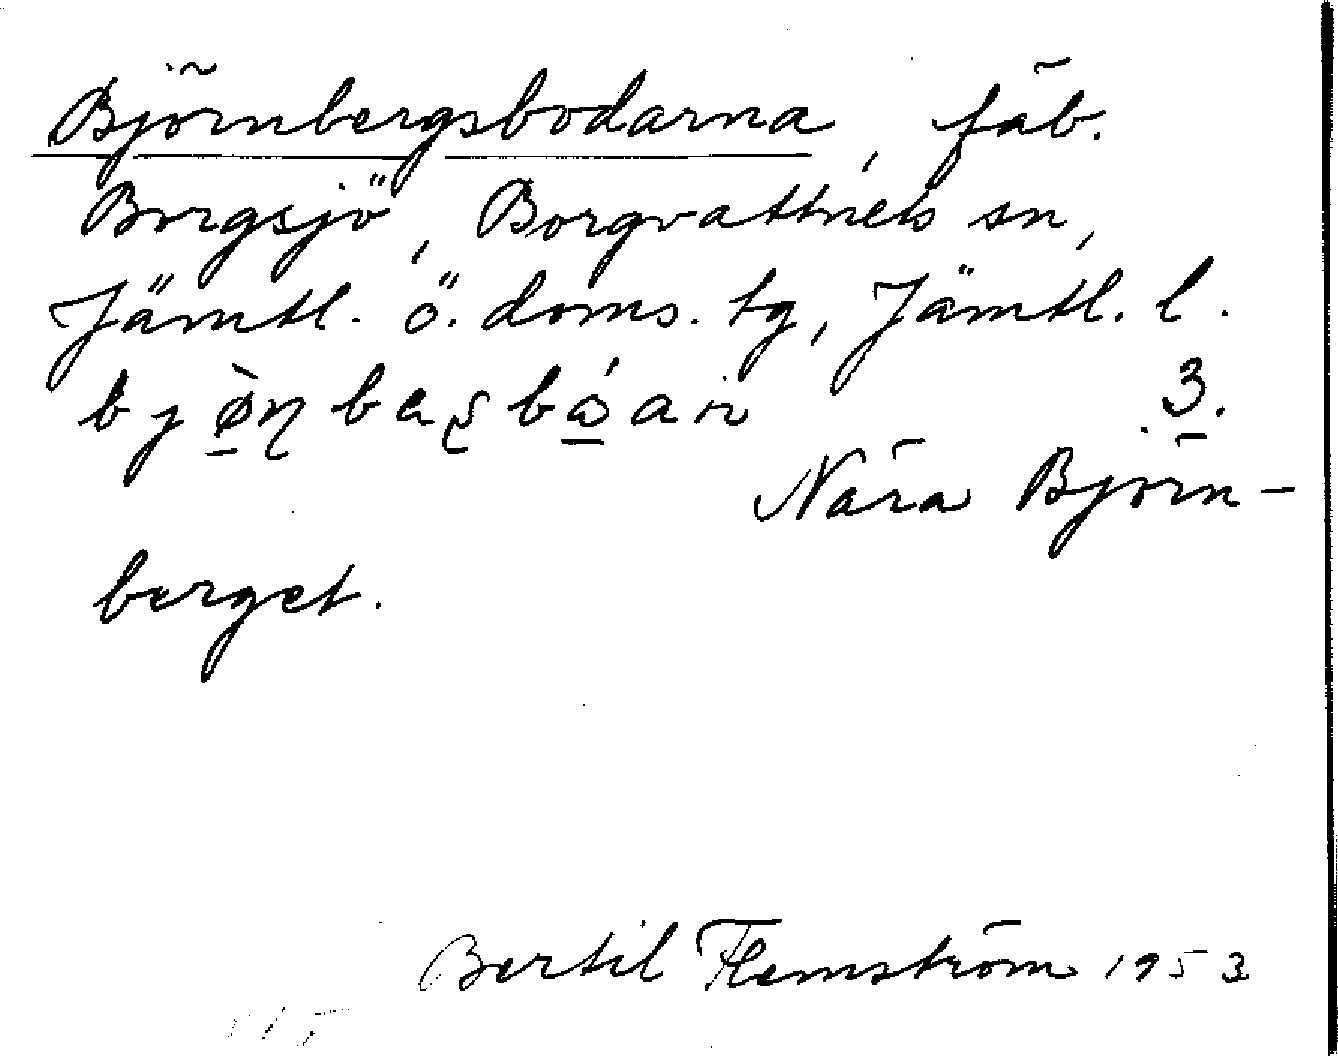 Björnbergsbodarna, fäb.
Borgsjö, Borgvattnets sn,
Jämtl. ö. doms. tg, Jämtl. l.
3.
Nära Björn-
berget.
Bertil Flemström 1953